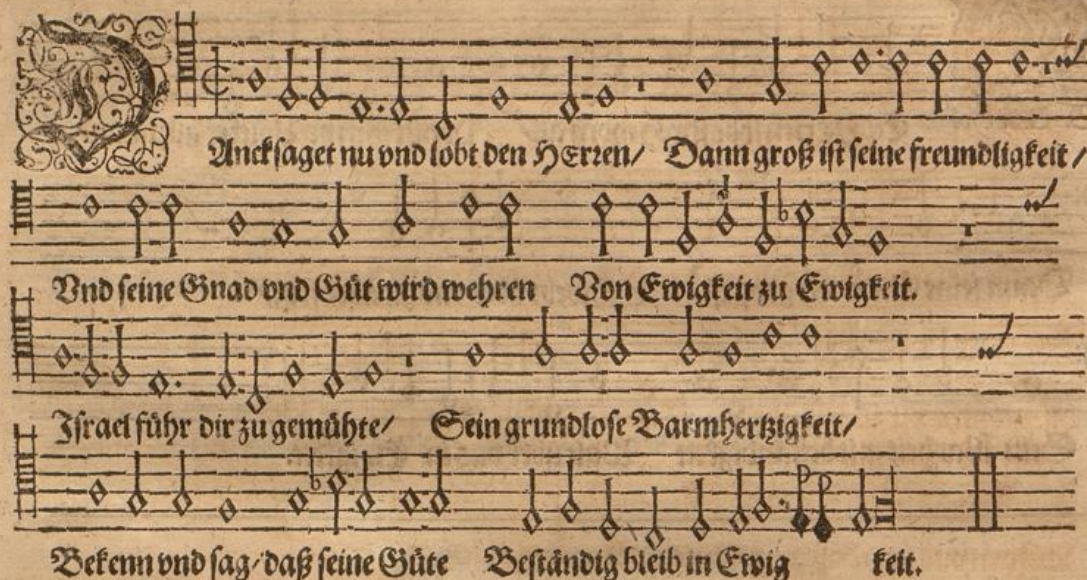 DAncksaget nu vnd lobt den HErren/ Dann groß ist seine freundligkeit/
Vnd seine Gnad vnd Güt wird wehren Von Ewigkeit zu Ewigkeit.
Israel führ dir zu gemühte/ Sein grundlose Barmhertzigkeit/
Bekenn vnd sag/daß seine Güte Beständig bleib in Ewig keit.